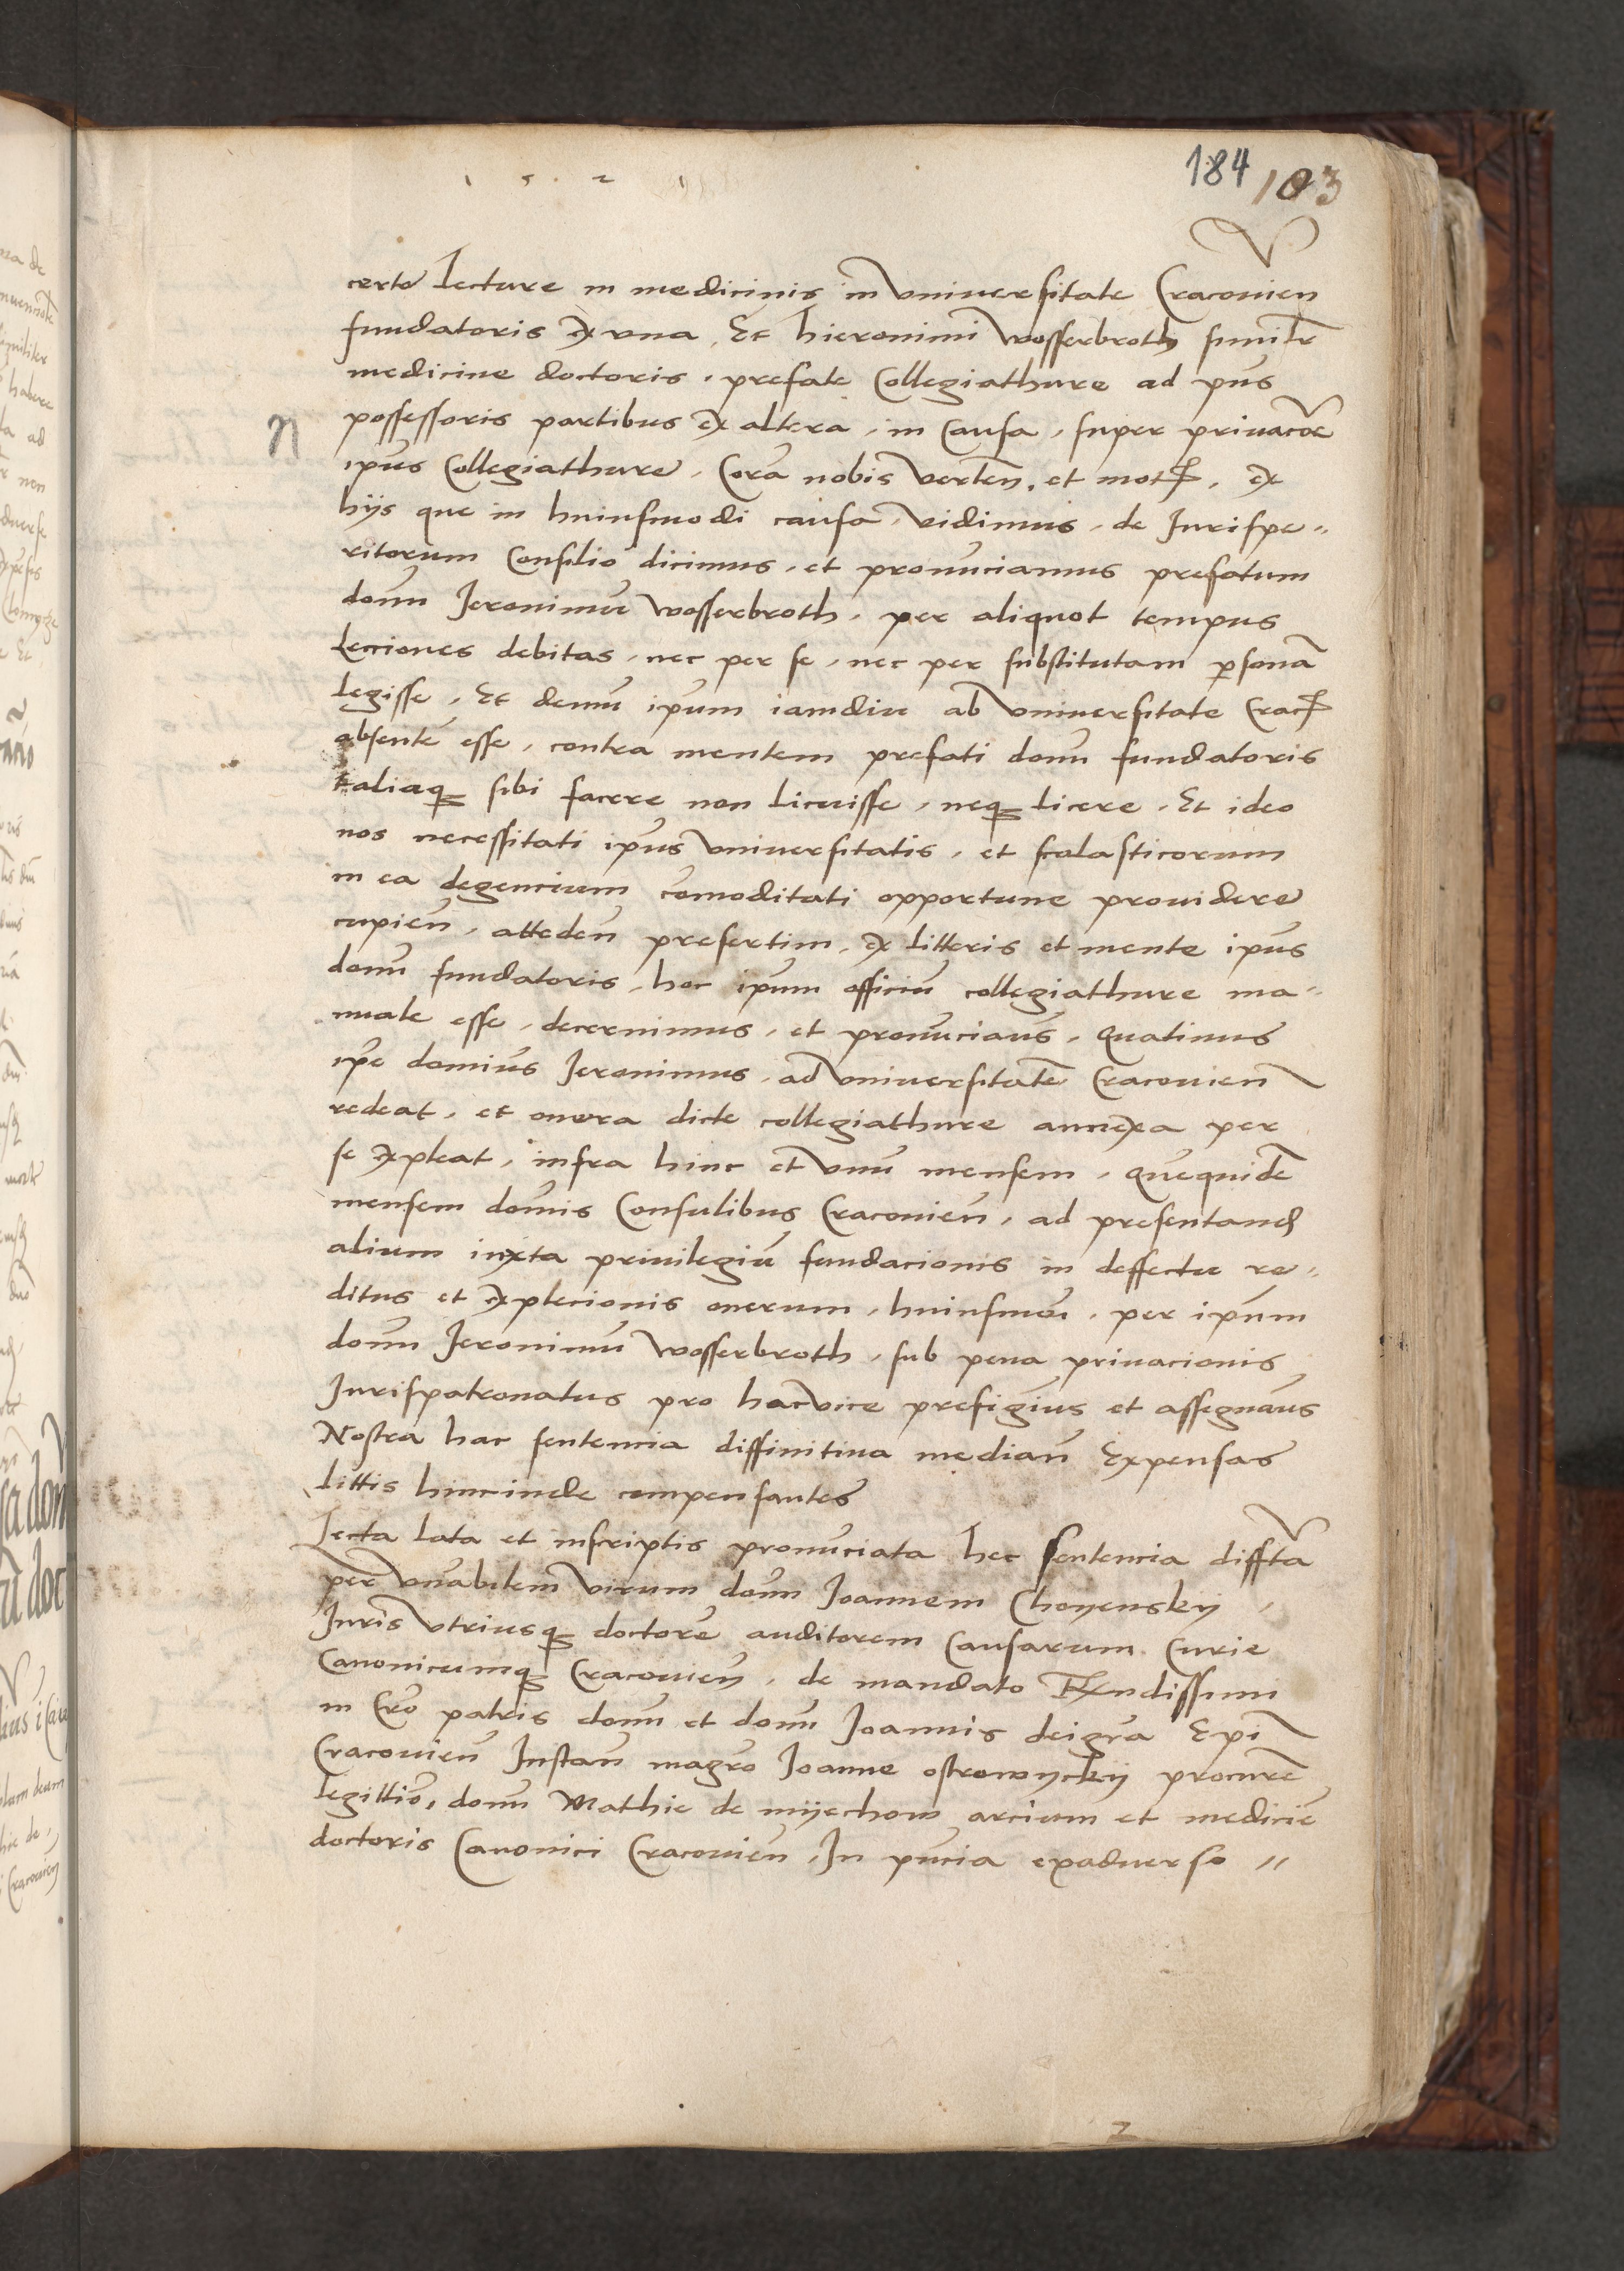 1 5 2 1
184 103
certe lecture in medicinis in vniuersitate Cracouien
fundatoris ex vna, Et hieronimi wosserbroth similr
medicine doctoris, prefate Collegiathure ad pns
possessoris partibus ex altera, in Causa, super priuacoe
ipius Collegiathure, Cora nobis verten, et mot, ex
hijs que in huiusmodi causa, vidimus, de Jurispe-
ritorum Consilio dicimus, et pronuciamus prefatum
donu Jeronimu wosserbroth, per aliquot tempus
Lecciones debitas, nec per se, nec per substitutam psona
legisse, Et demu ipum iamdiu ab vniuersitate Crac
absente esse, contra mentem prefati donu fundatoris
taliaq sibi facere non licuisse, neq licere, Et ideo
nos necessitati ipius vniuersitatis, et scolasticorum
in ea degencium comoditati opportune prouidere
cupien, atteden presertim, ex litteris et mente ipius
donu fundatoris, hoc ipum officiu collegiathure ma-
nuale esse, decernimus, et pronuciaus, Quatinus
ipe domius Jeronimus, ad vniuersitate Cracouien
redeat, et onera dicte collegiathure annexa per
se expleat, infra hinc et vnu mensem, Quequide
mensem domis Consulibus Cracouien, ad presentand
alium iuxta priuilegiu fundacionis in deffectu re-
ditus et explecionis onerum, huiusmoi, per ipum
donu Jeronimu wosserbroth, sub pena priuacionis
Jurispatronatus pro hacvice prefigius et assegnaus
Nostra hac sentencia diffinitiua median Expensas
littis hincinde compensantes
Lecta lata et inscriptis pronuciata hec sentencia diffta
per vnabilem virum donu Joannem Choyensky,
Juris vtriusq doctore auditorem Causarum Curie
Canonicumq Cracouien, de mandato Rndissimi
in Cro patris donu et donu Joannis deigra Epi
Cracouien Instan magro Joanne ostrowyczky procure
legittio, donu Mathie de myechow arcium et medicie
doctoris Canonici Cracouien, In pncia exaduerso